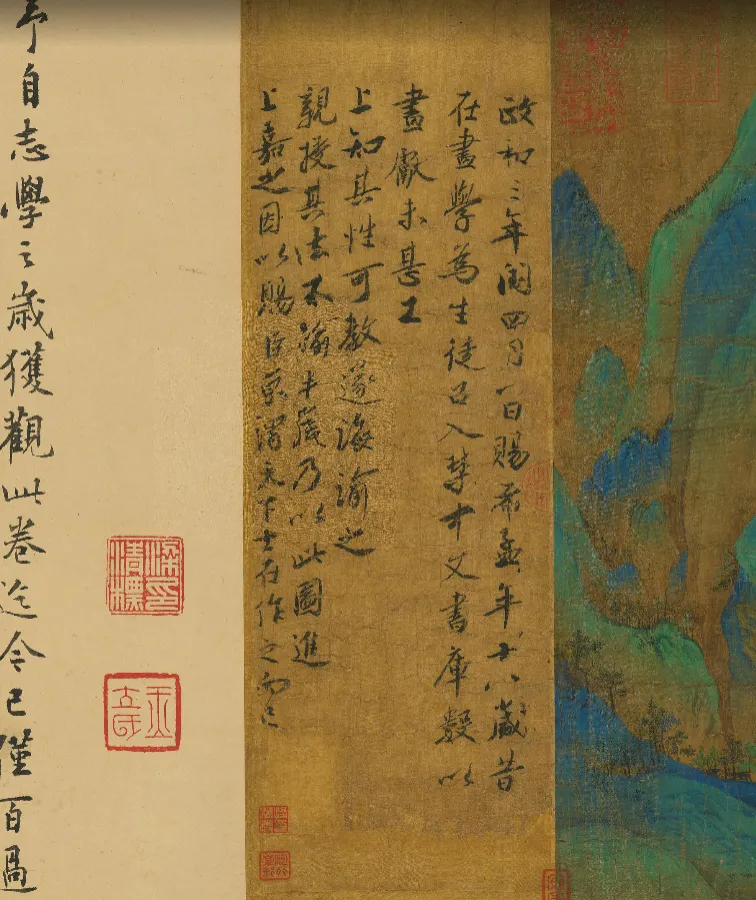 政和三年閏四月一日賜希孟年十八歲昔
在畫學為生徒召入禁中文書庫數以
畫獻未甚工
上知其性可教遂誨諭之
親授其法不踰半歲乃以此圖進
上嘉之因以賜臣京謂天下士在作之而已
予自志學之歲獲觀此卷迄今已僅百過